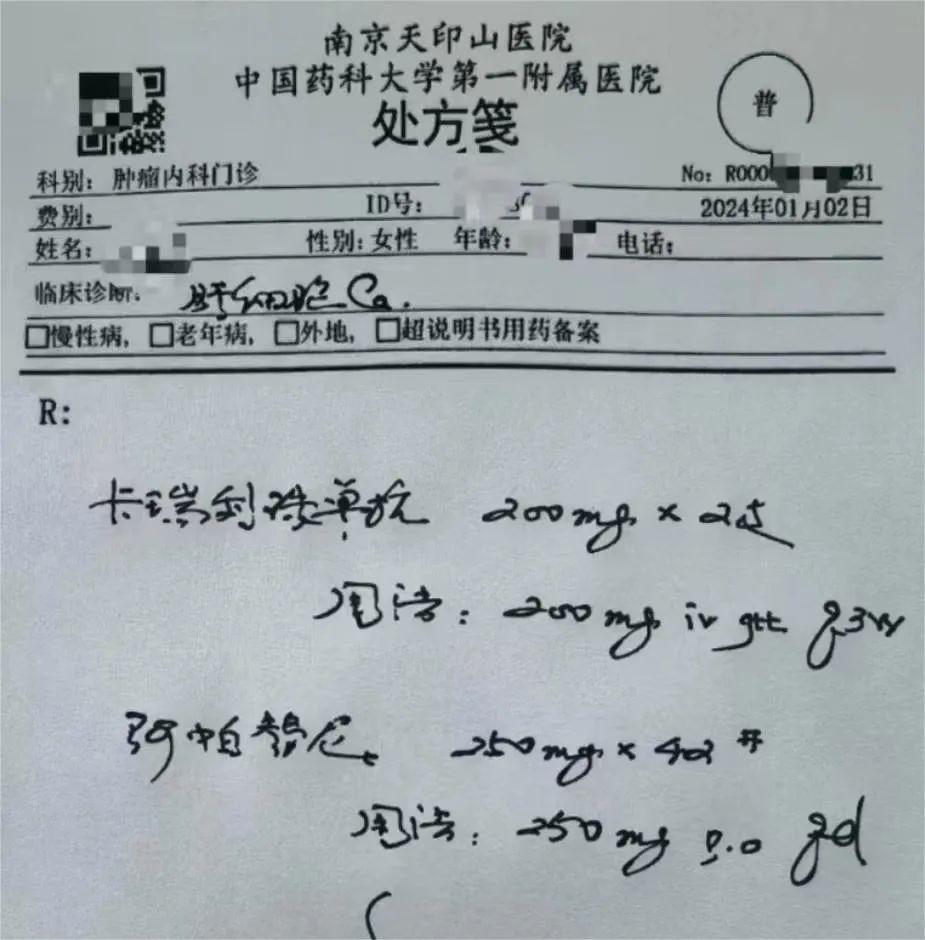 南京天印山医院
中国药科大学第一附属医院
处方笺
普
科别: 肿瘤内科门诊
No: R000 31
费别:
ID号:
2024年01月02日
姓名:
性别: 女性 年龄: 电话:
临床诊断: 肝细胞Ca.
□慢性病, □老年病, □外地, □超说明书用药备案
R:
卡瑞利珠单抗 200mg × 2支
用法: 200mg iv gtt q3w
阿帕替尼 250mg × 42#
用法: 250mg p.o qd